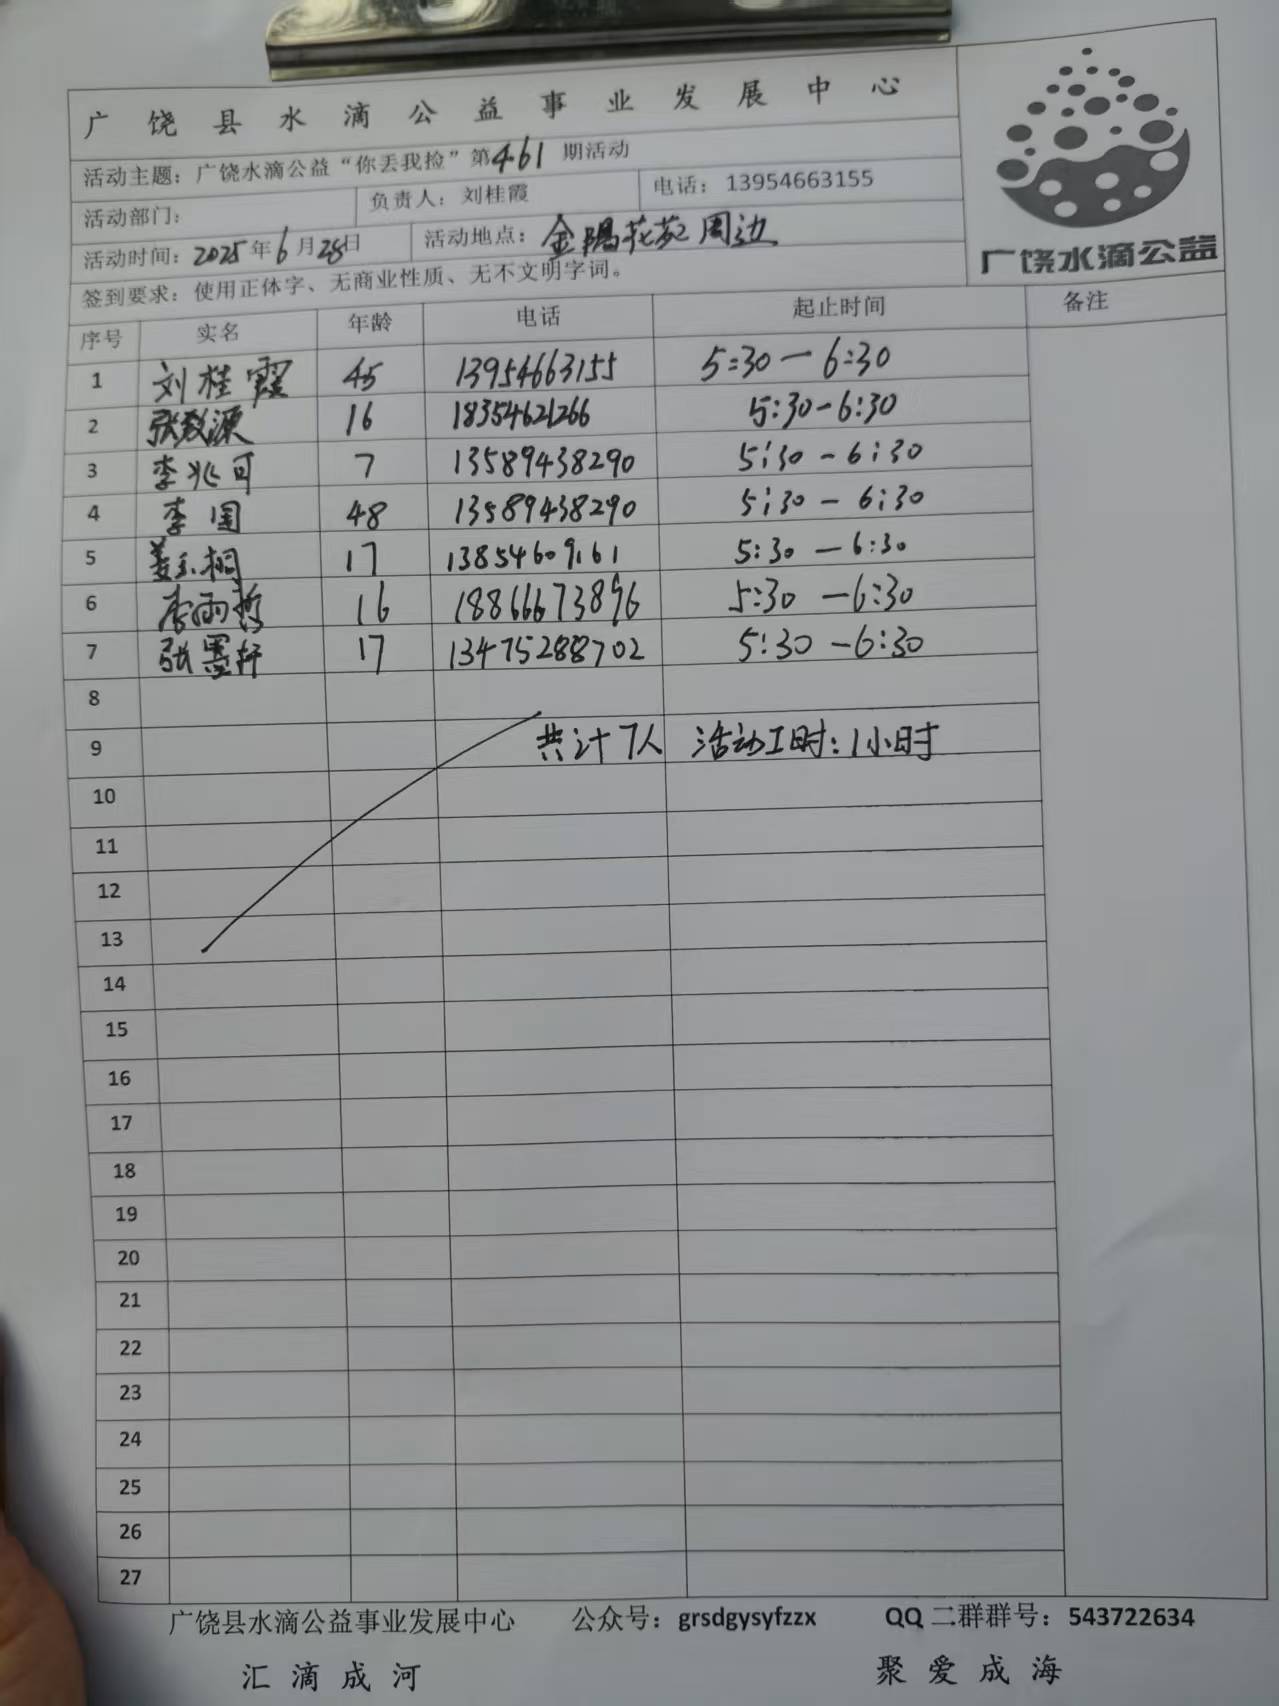 广饶县水滴公益事业发展中心
活动主题：广饶水滴公益“你丢我捡”第461期活动
活动部门： 负责人：刘桂霞 电话：13954663155
活动时间：2025年6月28日 活动地点：金陽花苑周边
签到要求：使用正体字、无商业性质、无不文明字词。
广饶水滴公益
序号 实名 年龄 电话 起止时间 备注
1 刘桂霞 45 13954663155 5:30—6:30
2 张致源 16 18354621266 5:30-6:30
3 李兆可 7 13589438290 5:30-6:30
4 李国 48 13589438290 5:30-6:30
5 姜玉桐 17 13854609161 5:30—6:30
6 李雨哲 16 18866673896 5:30—6:30
7 张墨轩 17 13475288702 5:30—6:30
8
9 共计7人 活动工时：1小时
10
11
12
13
14
15
16
17
18
19
20
21
22
23
24
25
26
27
广饶县水滴公益事业发展中心 公众号：grsdgysyfzzx QQ二群群号：543722634
汇滴成河 聚爱成海